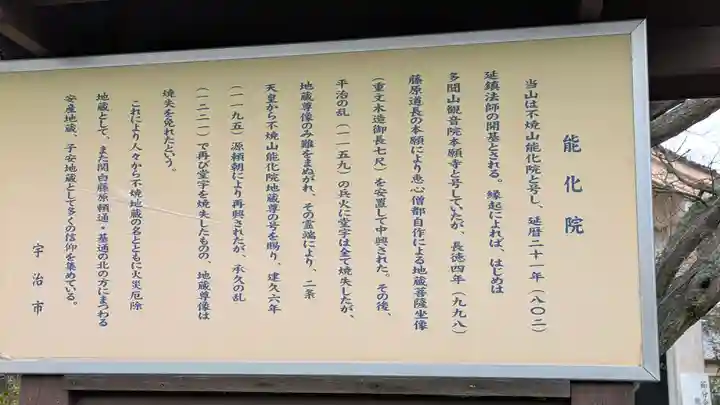 能化院
当山は不焼山能化院と号し、延暦二十一年（八〇二）
延鎮法師の開基とされる。縁起によれば、はじめは
多聞山観音院本願寺と号していたが、長徳四年（九九八）
藤原道長の本願により恵心僧都自作による地蔵菩薩坐像
（重文木造御長七尺）を安置して中興された。その後、
平治の乱（一一五九）の兵火に堂宇は全て焼失したが、
地蔵尊像のみ難をまぬがれ、その霊端により、二条
天皇から不焼山能化院地蔵尊の号を賜り、建久六年
（一一九五）源頼朝により再興されたが、承久の乱
（一二二一）で再び堂宇を焼失したものの、地蔵尊像は
焼失を免れたという。
これにより人々から不焼地蔵の名とともに火災厄除
地蔵として、また関白藤原頼通・基通の北の方にまつわる
安産地蔵、子安地蔵として多くの信仰を集めている。
宇治市